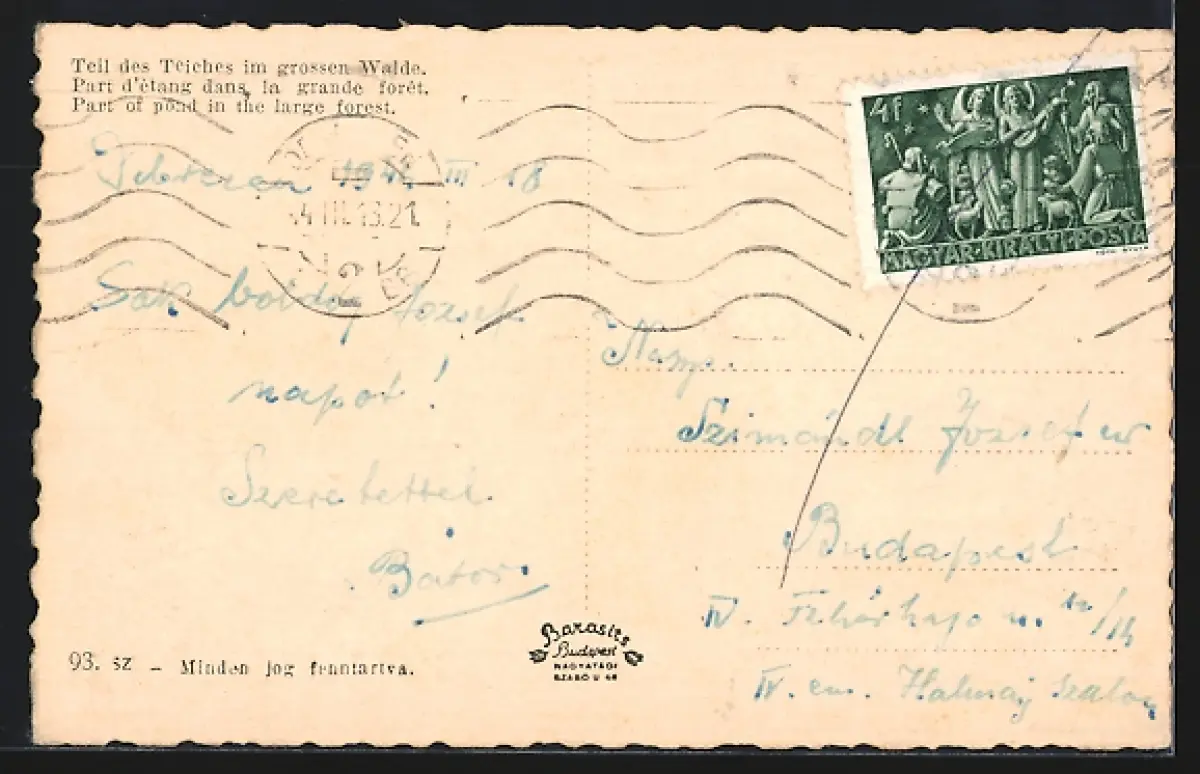 Teil des Teiches im grossen Walde.
Part d'étang dans la grande forêt.
Part of pond in the large forest.
4f
MAGYAR·KIRÁLYI·POSTA
Debrecen 194 III 18
Sok boldog József
napot!
Szeretettel
Bátori
Nagys.
Szimándl József úr
Budapest
IV. Fehérhajó u. 12/14
IV. em. Halmaj Szalon
Barasits
Budapest
NAGYATÁDI
SZABÓ U 48
93. sz - Minden jog fenntartva.